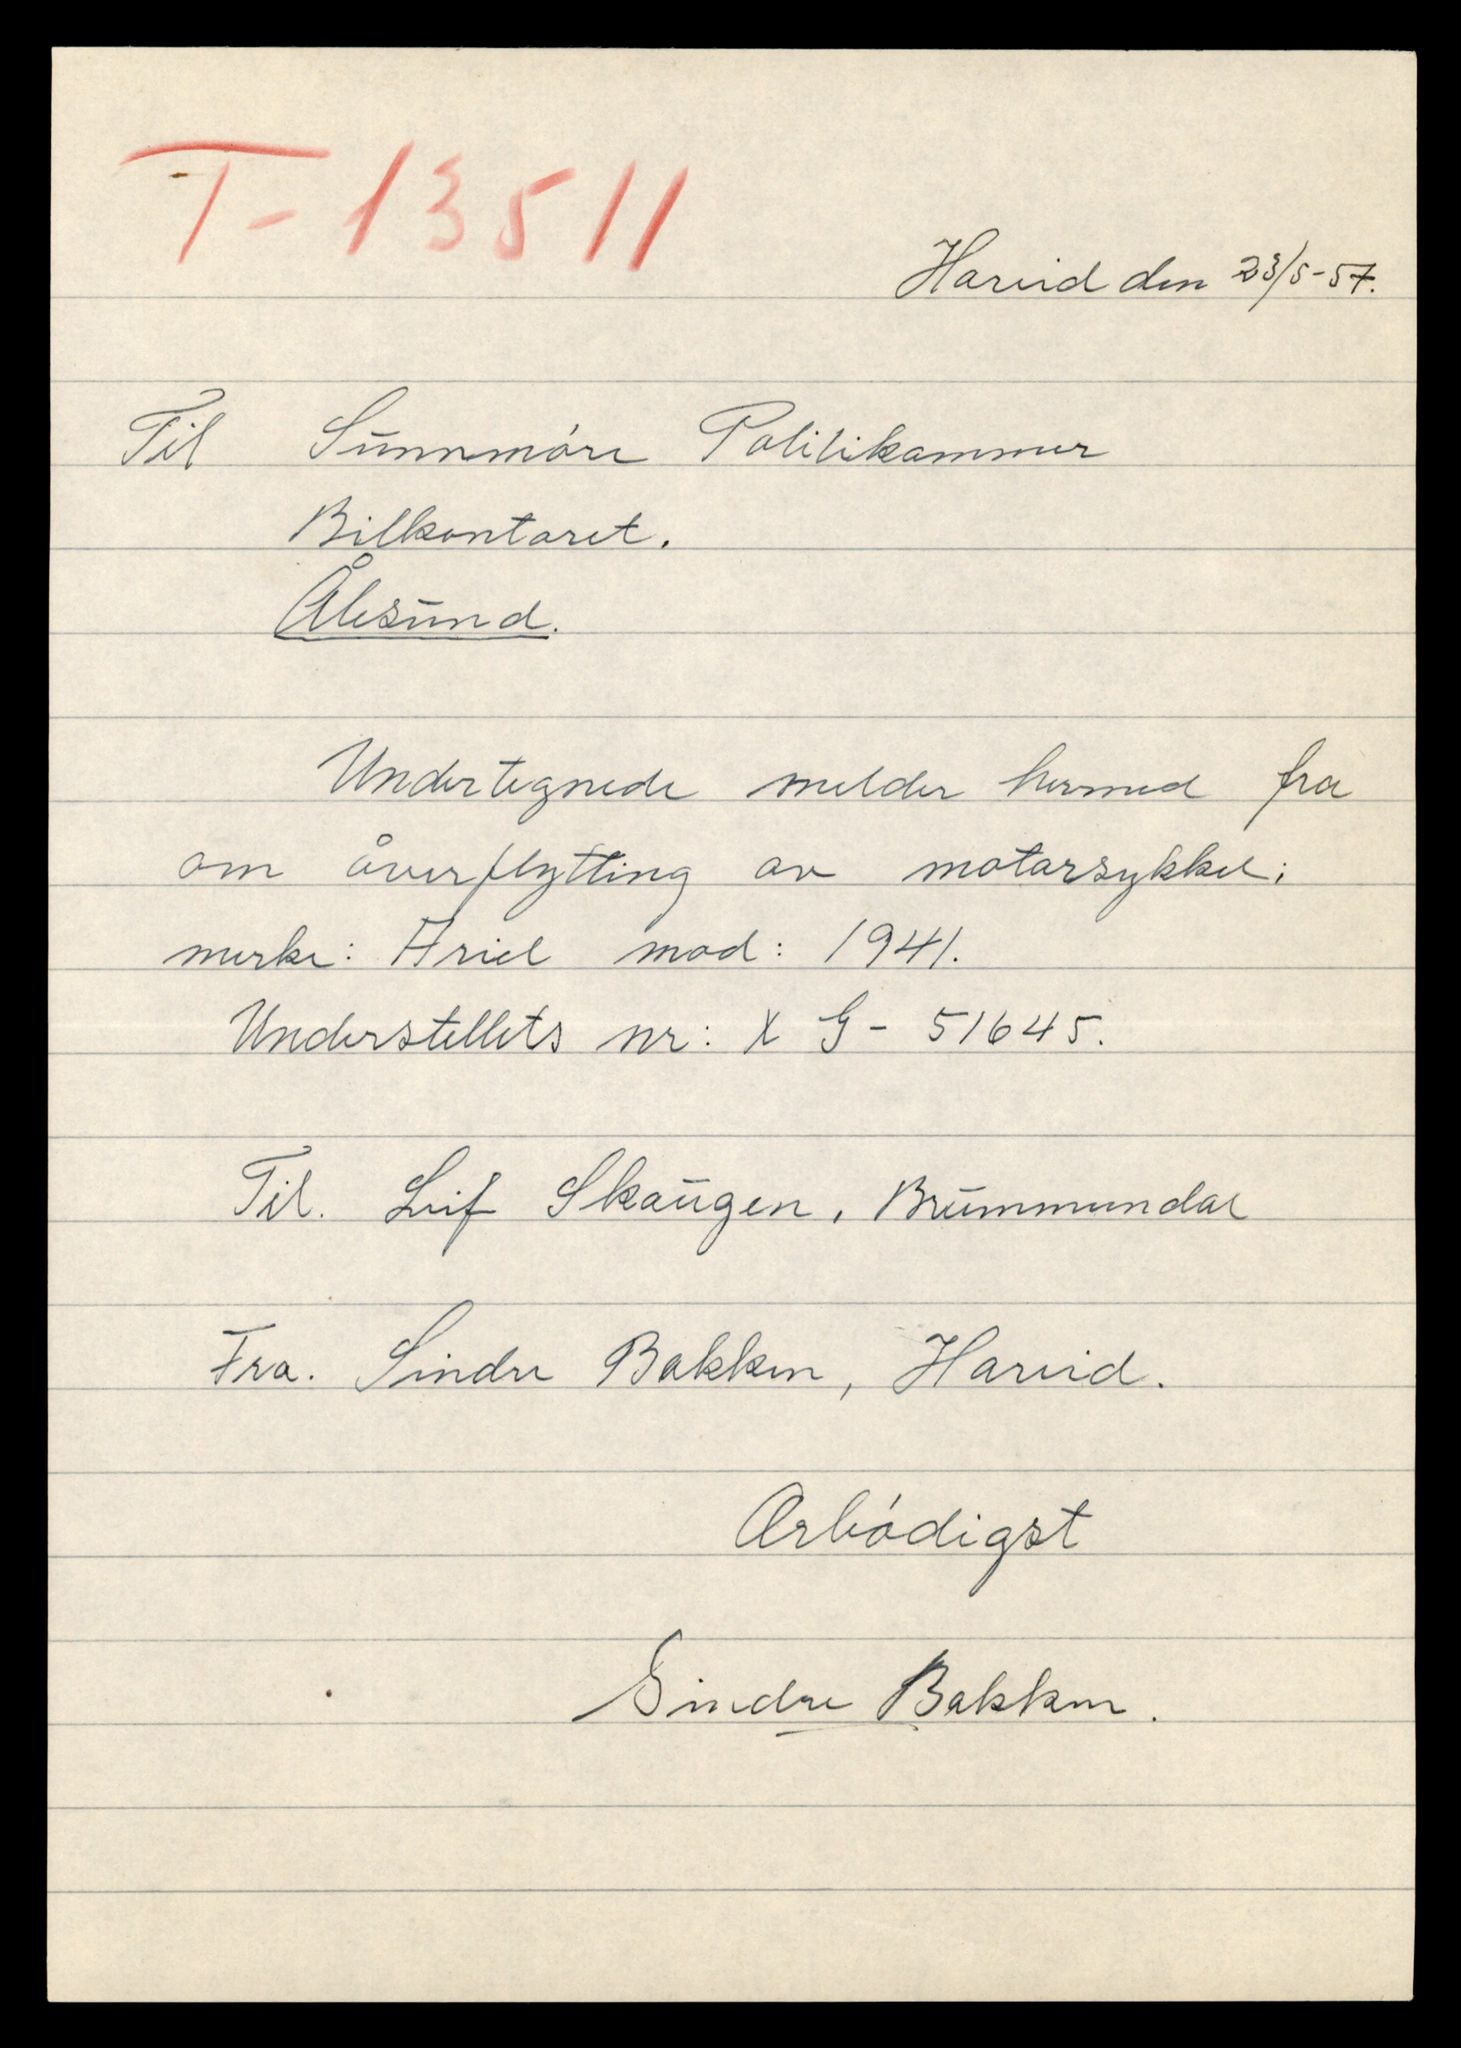 T-13511
Hareid den 23/5-57.
Til Sunnmöre Politikammer
Bilkontoret.
Ålesund.
Undertegnede melder hermed fra
om överflytting av motorsykkel:
merke: Ariel mod: 1941.
Understellets nr: X G - 51645.
Til. Leif Skaugen, Brummundal
Fra. Sindre Bakken, Hareid.
Ærbödigst
Sindre Bakken.